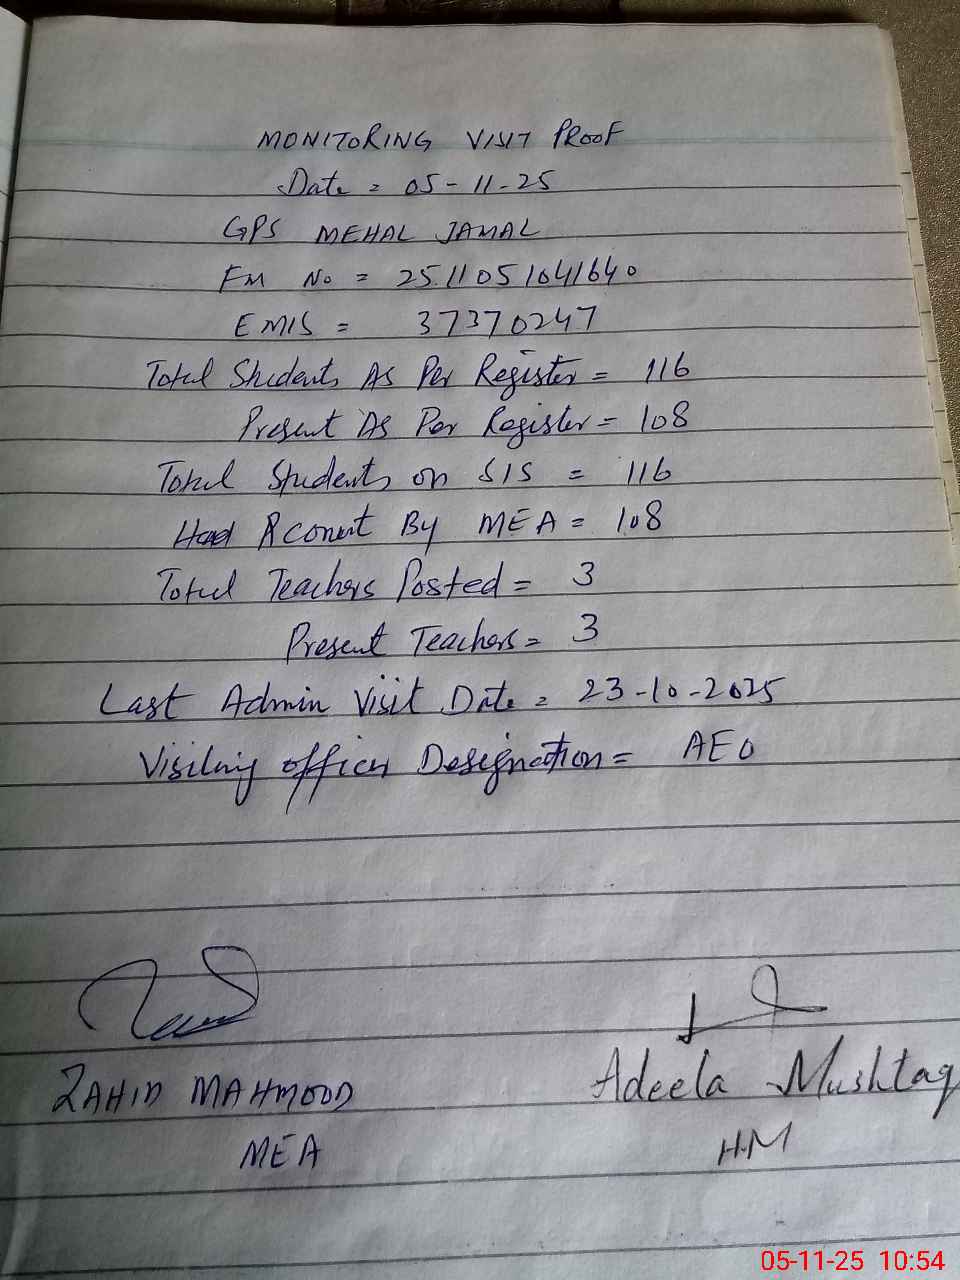 MONITORING VISIT PROOF
Date = 05-11-25
GPS MEHAL JAMAL
FM No = 2511051041640
EMIS = 37370247
Total Students As Per Register = 116
Present As Per Register = 108
Total Students on SIS = 116
Head Count By MEA = 108
Total Teachers Posted = 3
Present Teachers = 3
Last Admin Visit Date = 23-10-2025
Visiting officer Designation = AEO
ZAHID MAHMOOD
Adeela Mushtaq
MEA
HM
05-11-25 10:54